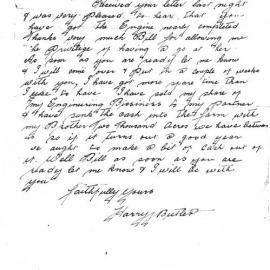 Received your letter last night
& was very pleased to hear that you
have got the Engine nearly completed
thanks very much Bill for allowing me
the privilege of having a go at her
As soon as you are ready let me know
& I will come over & put in a couple of weeks
with you. I have got more spare time than
I use to have. I have sold my share of
my Engineering Business to my partner
& have sank the cash into the farm with
my Brother two thousand Acres we have between
us so if it turns out a good year
we ought to make a bit of cash out of
it. Well Bill as soon as you are
ready let me know & I will be with
you
Faithfully yours
Harry Butler